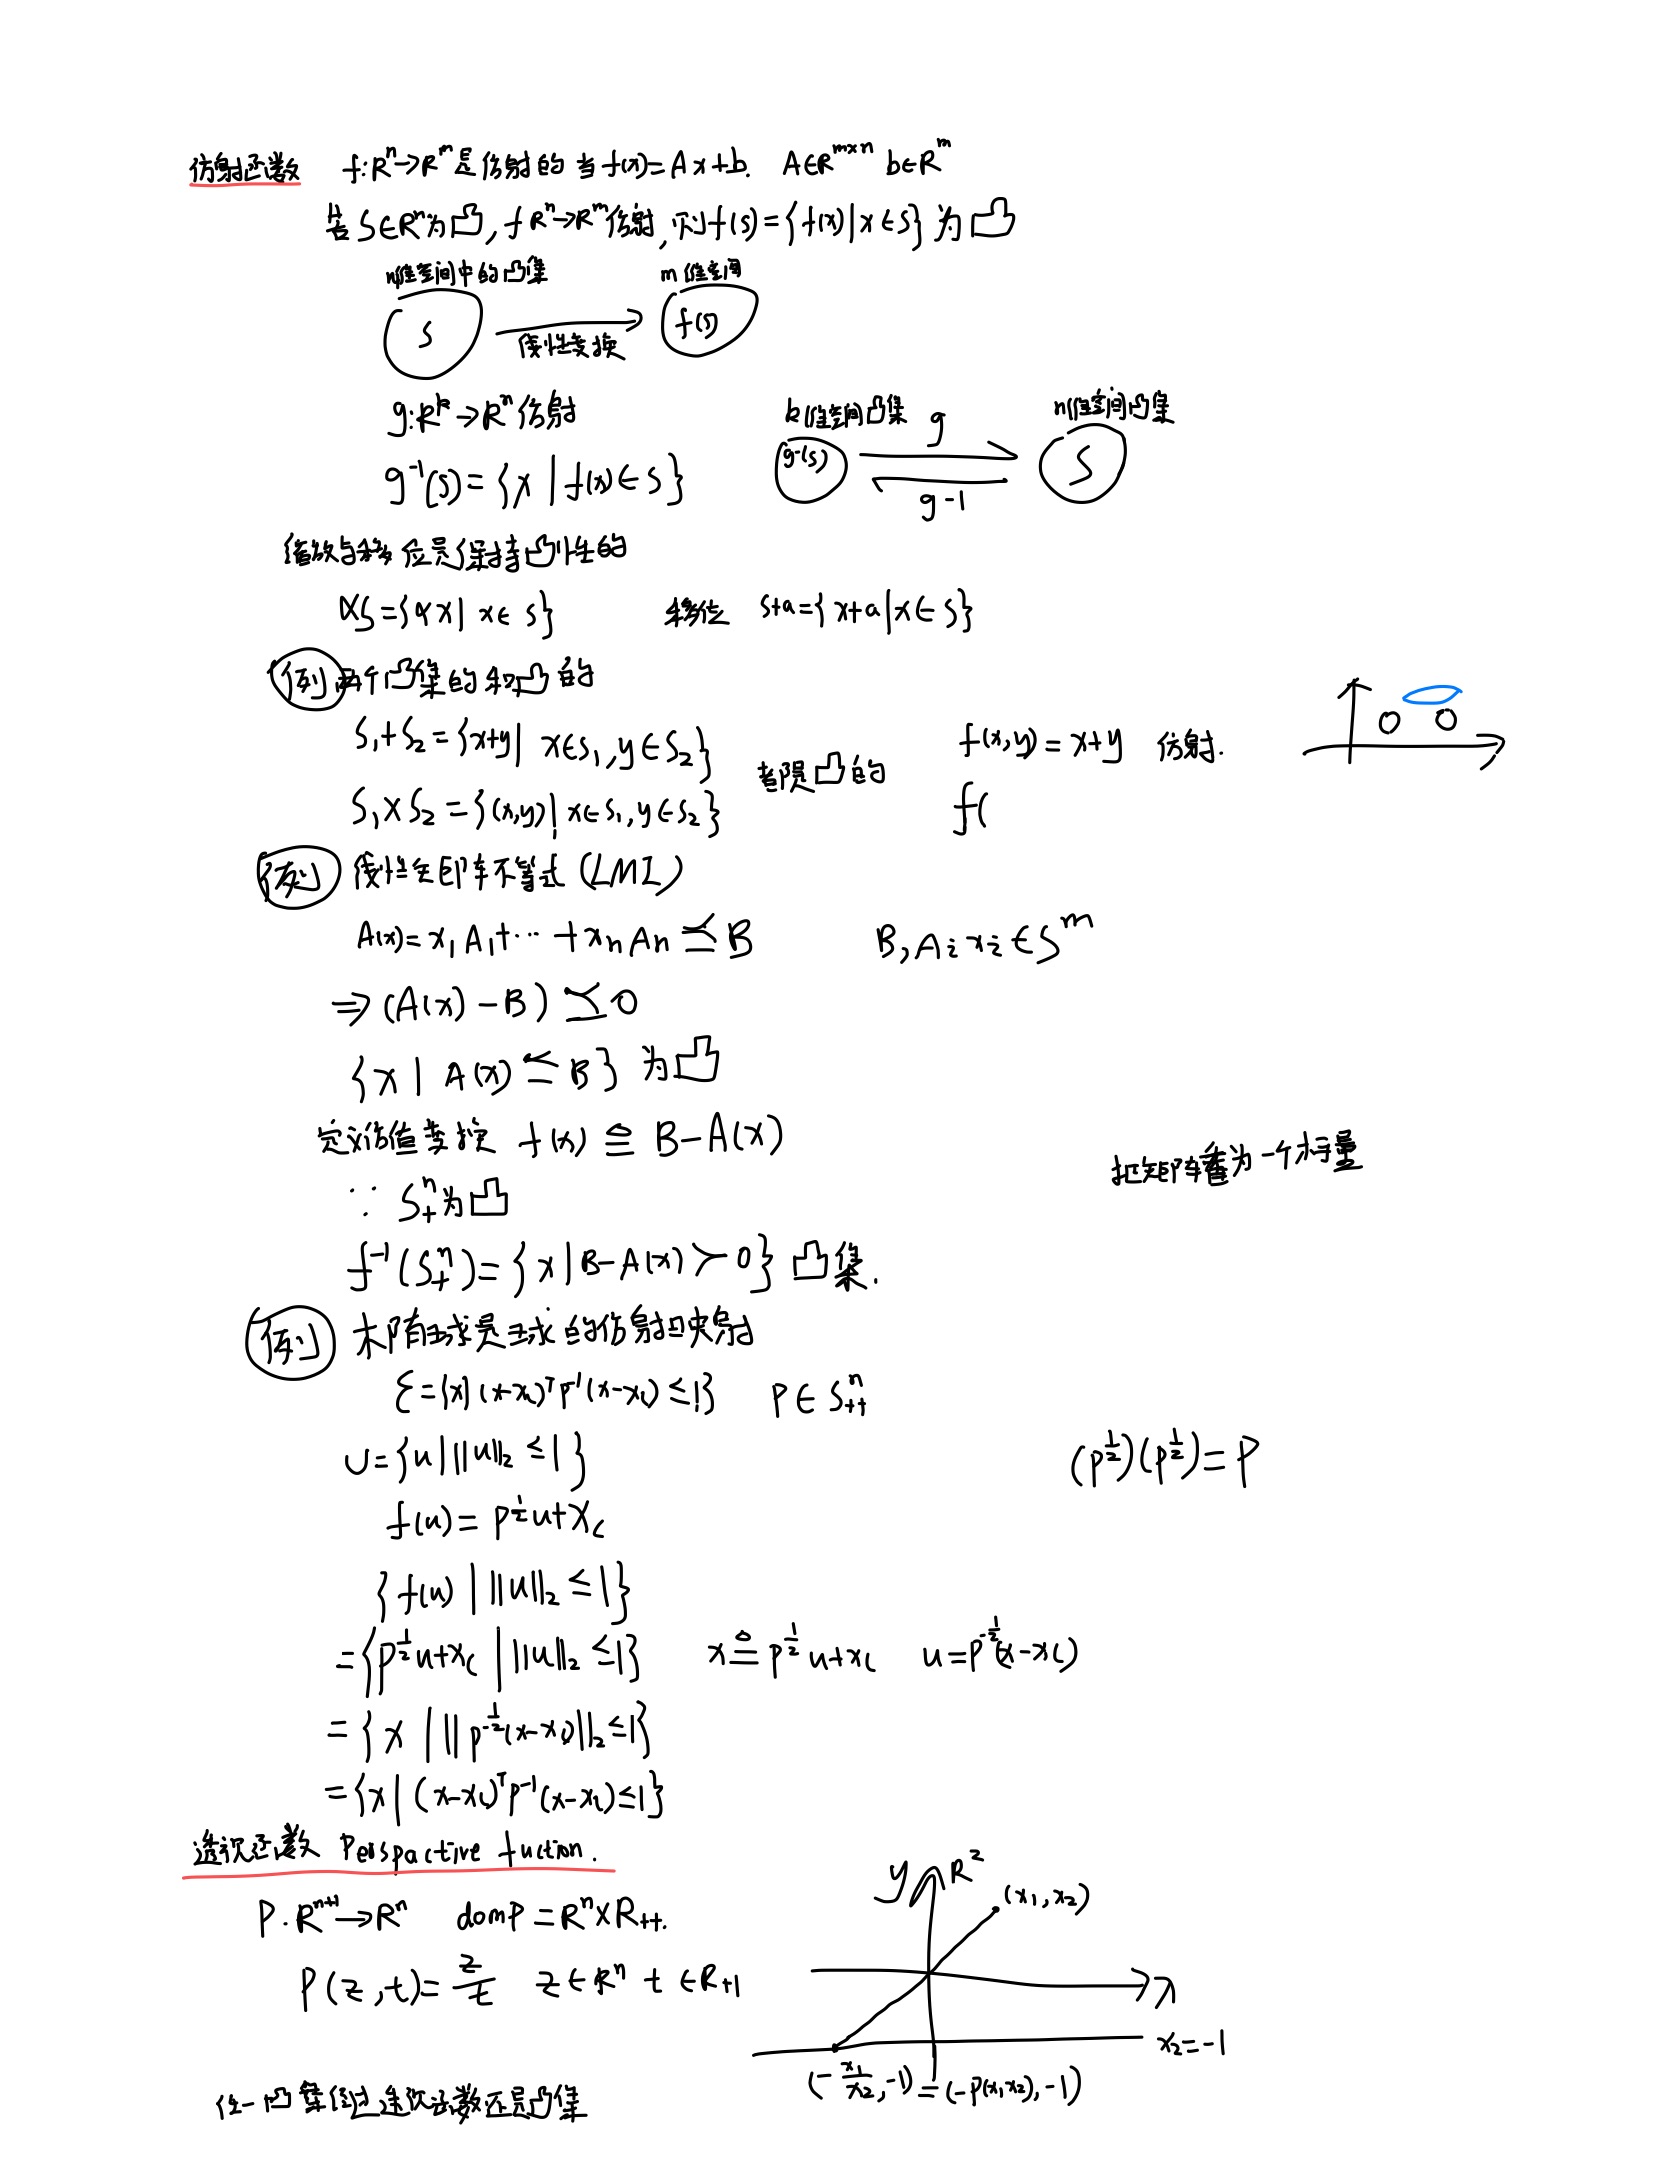 仿射函数 f: Rⁿ→Rᵐ 是仿射的 当 f(x)=Ax+b. A∈Rᵐˣⁿ b∈Rᵐ
若 S∈Rⁿ为凸, f Rⁿ→Rᵐ 仿射, 则 f(s)={f(x)|x∈S} 为凸
n维空间中的凸集 m维空间
S f(s)
线性变换
g: Rᵏ→Rⁿ 仿射
k维空间凸集 g n维空间凸集
g⁻¹(s)={x|f(x)∈S} g⁻¹(s) S
g-1
缩放与移位是保持凸性的
αS={αx| x∈S} 移位 S+a={x+a|x∈S}
例 两个凸集的和凸的
S₁+S₂={x+y| x∈S₁,y∈S₂} 都是凸的 f(x,y)=x+y 仿射.
S₁×S₂={(x,y)|x∈S₁,y∈S₂} f(
例 线性矩阵不等式 (LMI)
A(x)=x₁A₁+⋯+xₙAₙ ⪯ B B,Aᵢ xᵢ∈Sᵐ
⇒(A(x)-B)⪯0
{x| A(x)⪯B} 为凸
定义仿值变换 f(x)≜B-A(x)
把矩阵看为一个标量
∵ S₊ⁿ为凸
f⁻¹(S₊ⁿ)={x|B-A(x)≻0} 凸集.
例 椭球是球的仿射映射
ℰ={x|(x-x_c)ᵀP⁻¹(x-x_c)≤1} P∈S₊₊ⁿ
U={u|‖u‖₂≤1} (P^½)(P^½)=P
f(u)=P^½u+x_c
{f(u)|‖u‖₂≤1}
={P^½u+x_c|‖u‖₂≤1} x≜P^½u+x_c u=P^-½(x-x_c)
={x|‖P^-½(x-x_c)‖₂≤1}
={x|(x-x_c)ᵀP⁻¹(x-x_c)≤1}
透视函数 Perspactive fuction.
y R² (x₁,x₂)
P: Rⁿ⁺¹→Rⁿ domP=Rⁿ×R₊₊.
P(z,t)=z/t z∈Rⁿ t∈R₊₁
x
x₂=-1
(-x₁/x₂,-1)=(-P(x₁x₂),-1)
任一凸集经过透视函数还是凸集